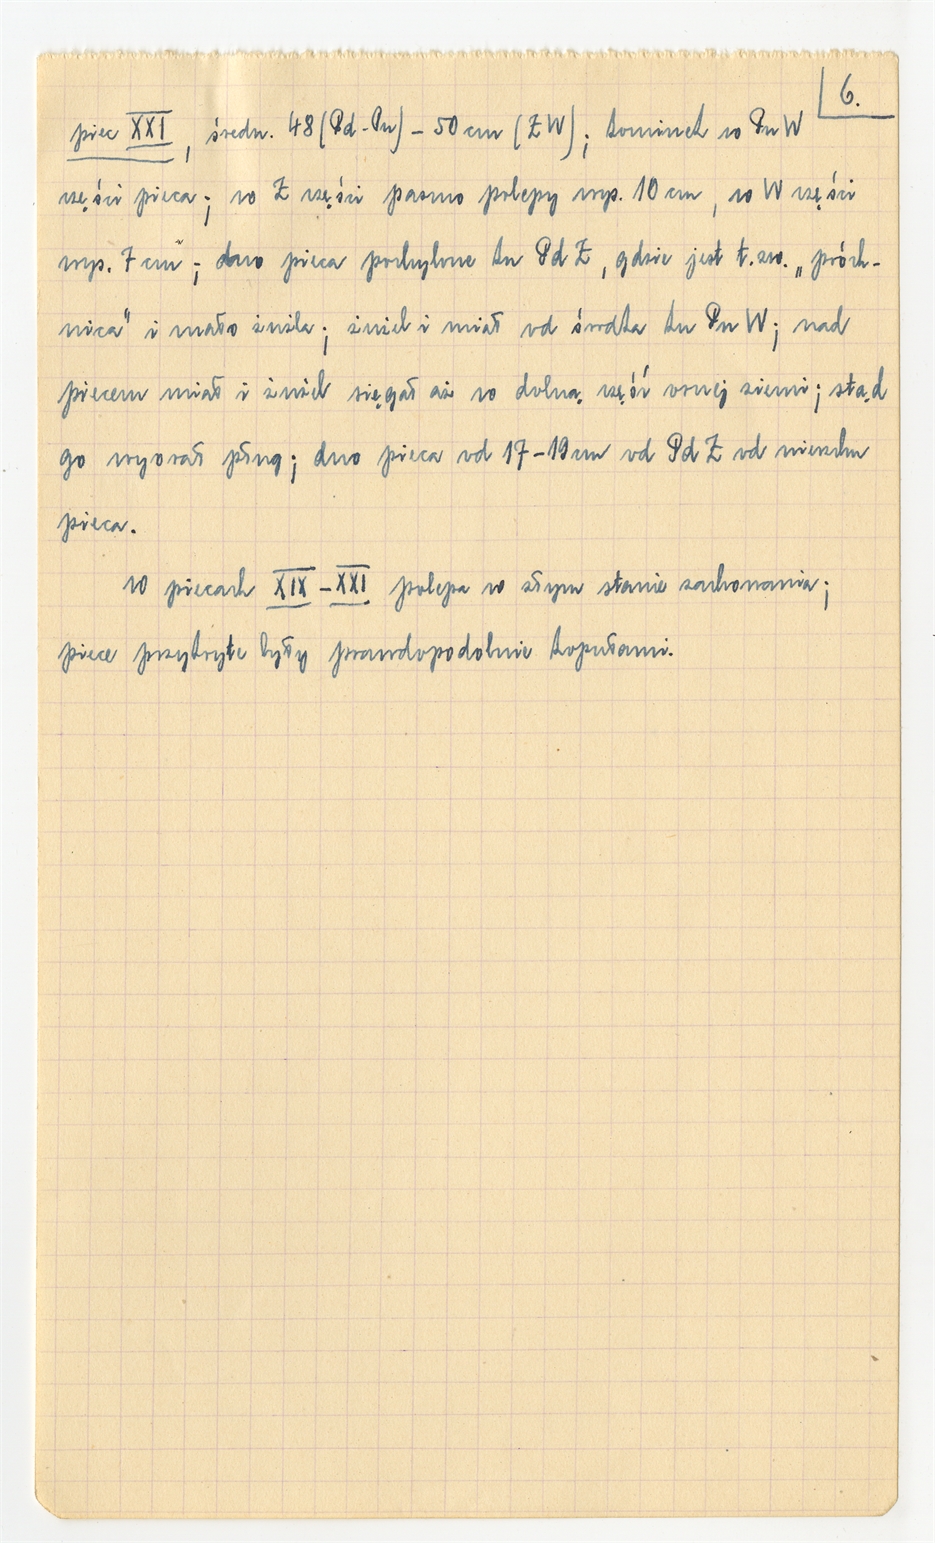 6.
piec XXI, średn. 48 (Pd-Pn) – 50 cm (ZW); kominek w PnW
części pieca; w Z części pasmo polepy wys. 10 cm, w W części
wys. 7 cm; dno pieca pochylone ku PdZ, gdzie jest t.zw. „próch-
nica" i mało żużla; żużel i miał od środka ku PnW; nad
piecem miał i żużel sięgał aż w dolną część ornej ziemi; stąd
go wyorał pług; dno pieca od 17–19 cm od PdZ od wierzchu
pieca.
W piecach XIX – XXI polepa w złym stanie zachowania;
piece przykryte były prawdopodobnie kopułami.